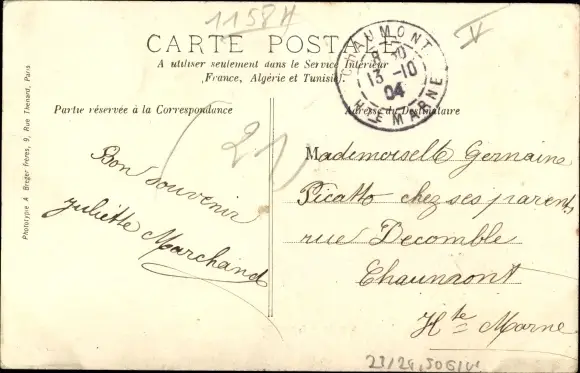 1158H
V
CARTE POSTALE
A utiliser seulement dans le Service Intérieur
(France, Algérie et Tunisie).
CHAUMONT
8 10
13 -10
04
HTE MARNE
Partie réservée à la Correspondance
Adresse du Destinataire
21
Bon souvenir
Juliette Marchand
Mademoiselle Germaine
Picatto chez ses parents
rue Decomble
Chaumont
Hte Marne
Phototypie A Breger frères, 9, Rue Thenard, Paris